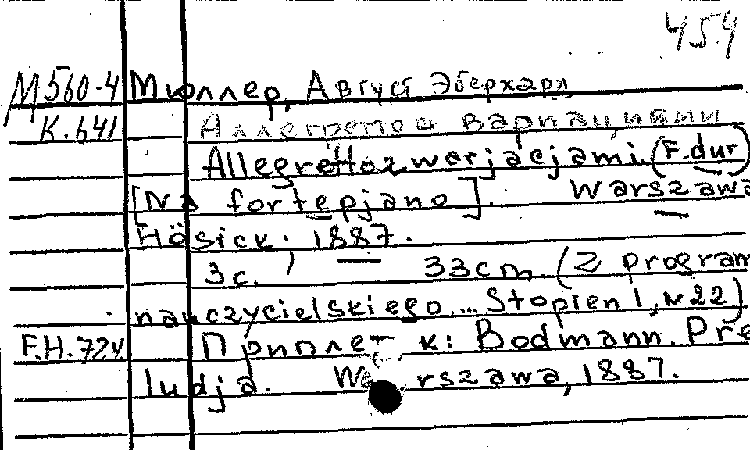 454
М560-4 Мюллер, Август Эберхард
К.641 Аллегретто с вариациями
Allegretto z warjacjami. (F. dur)
[Na fortepjano]. Warszawa
Hösick. 1887.
3с. 33cm. (Z program
nauczycielskiego... Stopien I, N22)
F.H.724 Приплет к: Bodmann. Pre
ludja. Warszawa, 1887.